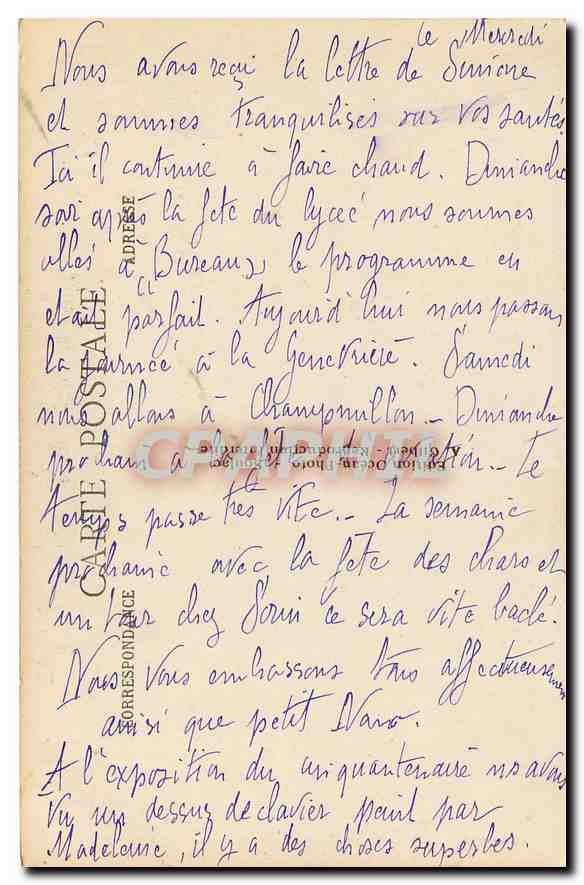 le Mercredi
Nous avons reçu la lettre de Simone
et sommes tranquilisés sur vos santés
Ici il continue à faire chaud. Dimanche
soir après la fête du lycée nous sommes
allés à "Bureau" le programme en
était parfait. Aujourd'hui nous passons
la journée à la Genevrière. Samedi
nous allons à Champmillon - Dimanche
prochain a la fête de - Le
temps passe très vite. - La semaine
prochaine avec la fête des chars et
un tour chez ce sera vite baclé.
Nous vous embrassons tous affectueusement
ainsi que petit
A l'exposition du cinquantenaire ns avons
vu un dessus de clavier peint par
Madeleine, il y a des choses superbes.
CARTE POSTALE
CORRESPONDANCE
ADRESSE
Edition Océan-Photo
Reproduction Interdite
CPAPHIL